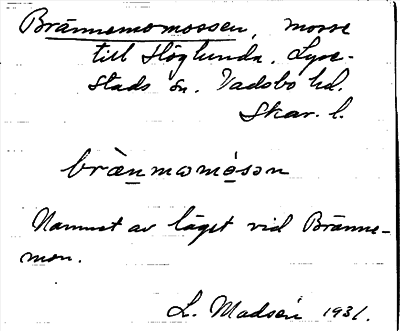 Brännemomossen, mosse
till Höglunda, Lyre-
stads sn. Vadsbo hd.
Skar. l.
bræ̀nmωmósən
Namnet av läget vid Bränne-
mon.
L. Madsén 1931.